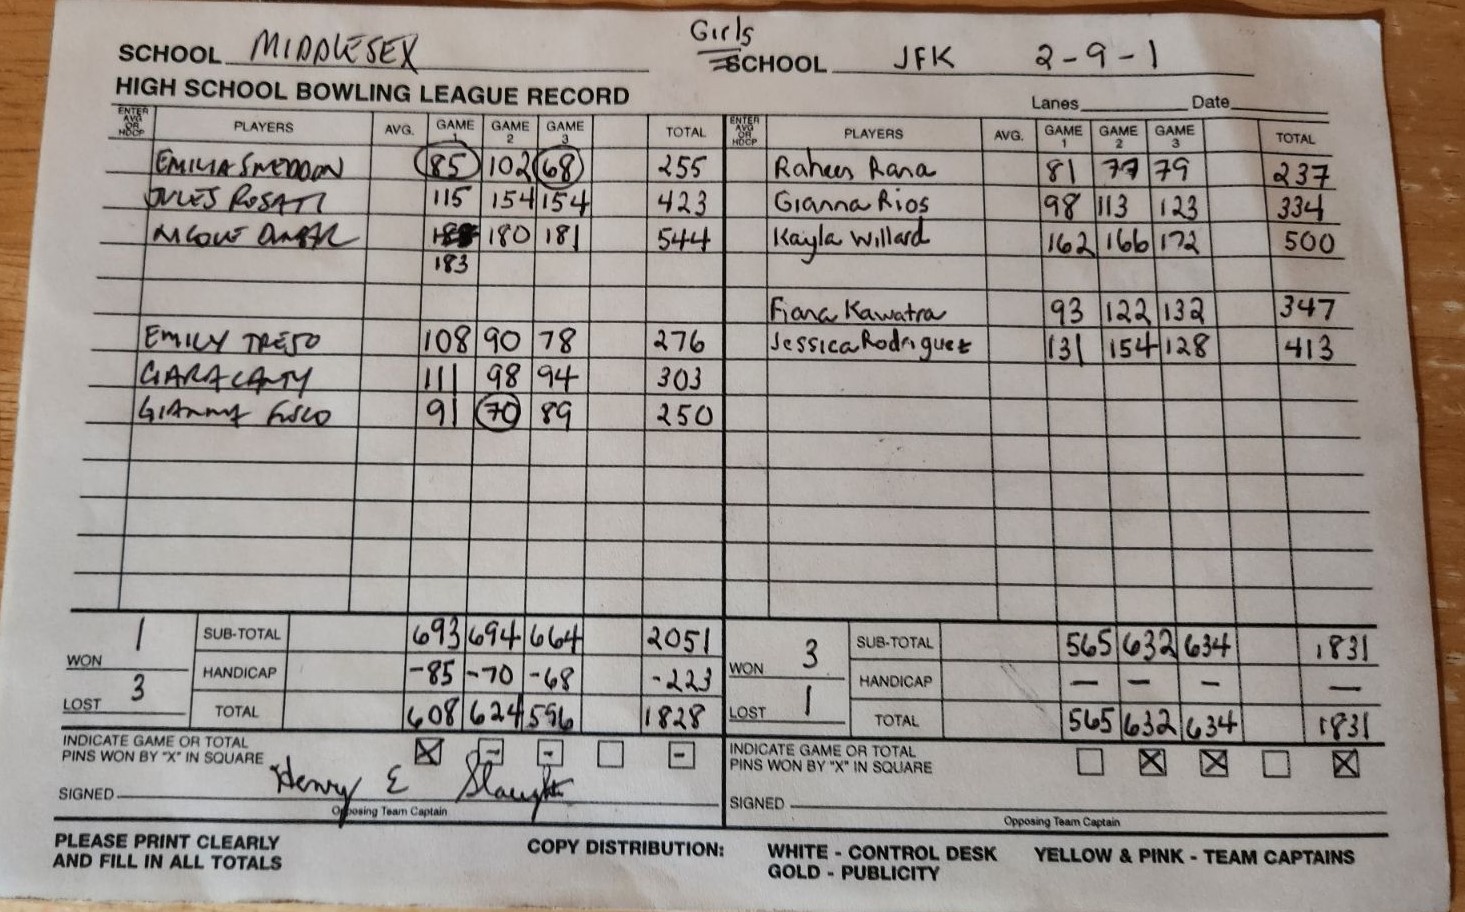 Girls
SCHOOL MIDDLESEX SCHOOL JFK 2-9-1
HIGH SCHOOL BOWLING LEAGUE RECORD Lanes Date
ENTER AVG OR HDCP PLAYERS AVG. GAME 1 GAME 2 GAME 3 TOTAL ENTER AVG OR HDCP PLAYERS AVG. GAME 1 GAME 2 GAME 3 TOTAL
EMILIA SNEDDON 85 102 68 255 Raheen Rana 81 77 79 237
JULES ROSATI 115 154 154 423 Gianna Rios 98 113 123 334
NICOLE 180 181 544 Kayla Willard 162 166 172 500
183
Fiana Kawatra 93 122 132 347
EMILY TREJO 108 90 78 276 Jessica Rodriguez 131 154 128 413
CIARA CANTY 111 98 94 303
GIANNA FUSCO 91 70 89 250
WON 1 SUB-TOTAL 693 694 664 2051 WON 3 SUB-TOTAL 565 632 634 1831
HANDICAP -85 -70 -68 -223 HANDICAP — — — —
LOST 3 TOTAL 608 624 596 1828 LOST 1 TOTAL 565 632 634 1831
INDICATE GAME OR TOTAL X - - - INDICATE GAME OR TOTAL X X X
PINS WON BY "X" IN SQUARE PINS WON BY "X" IN SQUARE
SIGNED Henry E SIGNED
Opposing Team Captain Opposing Team Captain
PLEASE PRINT CLEARLY COPY DISTRIBUTION: WHITE - CONTROL DESK YELLOW & PINK - TEAM CAPTAINS
AND FILL IN ALL TOTALS GOLD - PUBLICITY